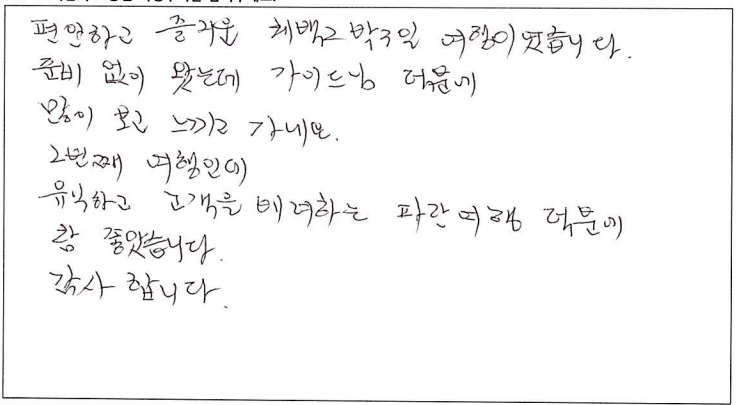 편안하고 즐거운 태백 2박 3일 여행이였습니다.
준비 없이 왔는데 가이드님 덕분에
많이 보고 느끼고 가네요.
2번째 여행인데
유익하고 고객을 배려하는 파란여행 덕분에
참 좋았습니다.
감사 합니다.